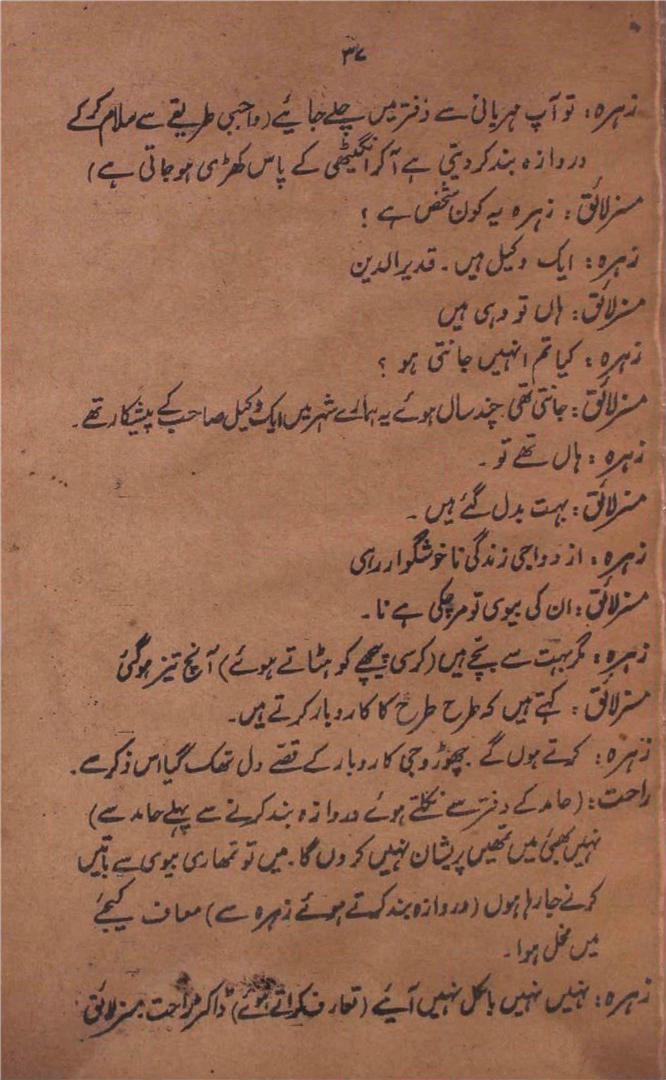 ۳۷
زہرہ: تو آپ مہربانی سے دفتر میں چلے جایئے (واجبی طریقے سے سلام کر کے
دروازہ بند کر دیتی ہے آکر انگیٹھی کے پاس کھڑی ہو جاتی ہے)
مسز لائق: زہرہ یہ کون شخص ہے؟
زہرہ: ایک وکیل ہیں۔ قدیر الدین
مسز لائق: ہاں تو وہی ہیں
زہرہ: کیا تم انہیں جانتی ہو؟
مسز لائق: جانتی تھی چند سال ہوئے یہ ہمارے شہر میں ایک وکیل صاحب کے پیشکار تھے۔
زہرہ: ہاں تھے تو۔
مسز لائق: بہت بدل گئے ہیں۔
زہرہ: ازدواجی زندگی ناخوشگوار رہی
مسز لائق: ان کی بیوی تو مر چکی ہے نا۔
زہرہ: مگر بہت سے بچے ہیں (کرسی پیچھے کو ہٹاتے ہوئے) آنچ تیز ہو گئی
مسز لائق: کہتے ہیں کہ طرح طرح کا کاروبار کرتے ہیں۔
زہرہ: کرتے ہوں گے۔ چھوڑو جی کاروبار کے قصے دل تھک گیا اس ذکر سے۔
راحت: (حامد کے دفتر سے نکلتے ہوئے دروازہ بند کرنے سے پہلے حامد سے)
نہیں بھئی میں تمھیں پریشان نہیں کروں گا۔ میں تو تمھاری بیوی سے باتیں
کرنے جا رہا ہوں (دروازہ بند کرتے ہوئے زہرہ سے) معاف کیجئے
میں مخل ہوا۔
زہرہ: نہیں نہیں بالکل نہیں آیئے (تعارف کراتے ہوئے) ڈاکٹر راحت، مسز لائق